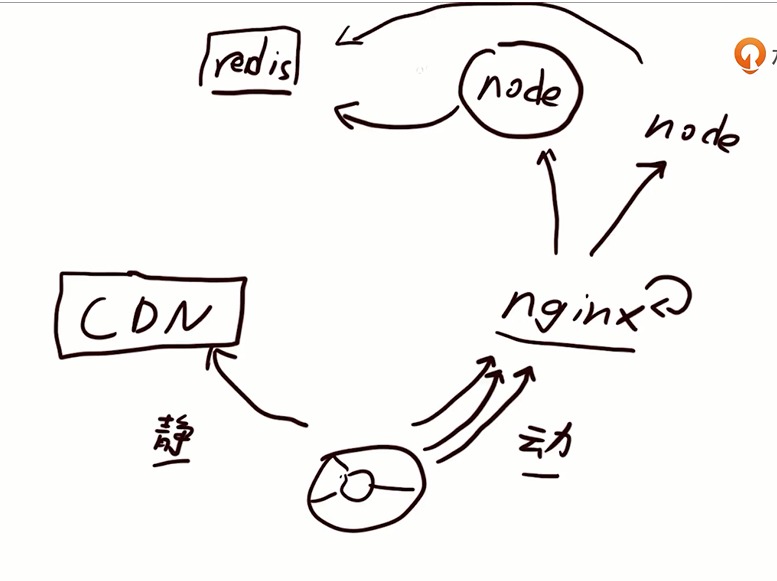 redis
node
node
CDN
nginx
静
动